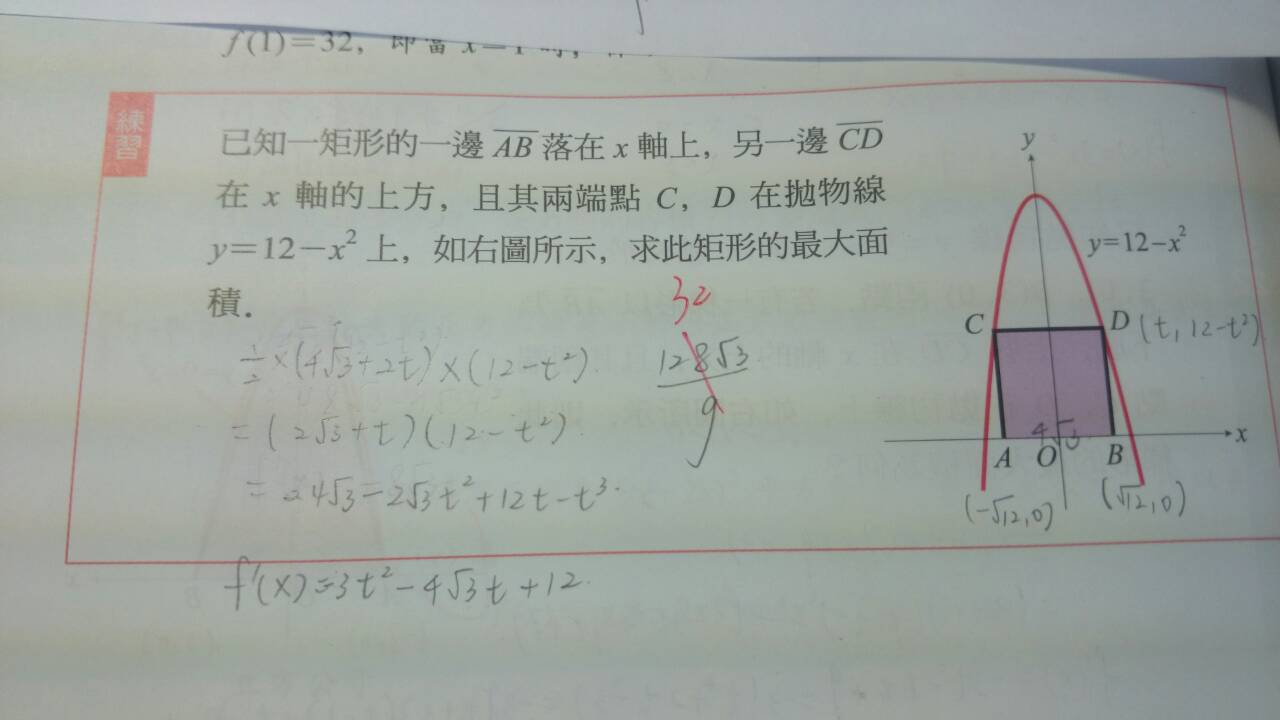 f(1)=32, 即當 x=1 時,
練習
已知一矩形的一邊 AB 落在 x 軸上，另一邊 CD
在 x 軸的上方，且其兩端點 C，D 在拋物線
y=12−x² 上，如右圖所示，求此矩形的最大面
積．
32
128√3
9
½×(4√3+2t)×(12−t²).
=(2√3+t)(12−t²)
=24√3−2√3t²+12t−t³.
f'(x)=3t²−4√3t+12.
y
y=12−x²
C
D (t, 12−t²)
4√3
x
A O B
(−√12,0)
(√12,0)